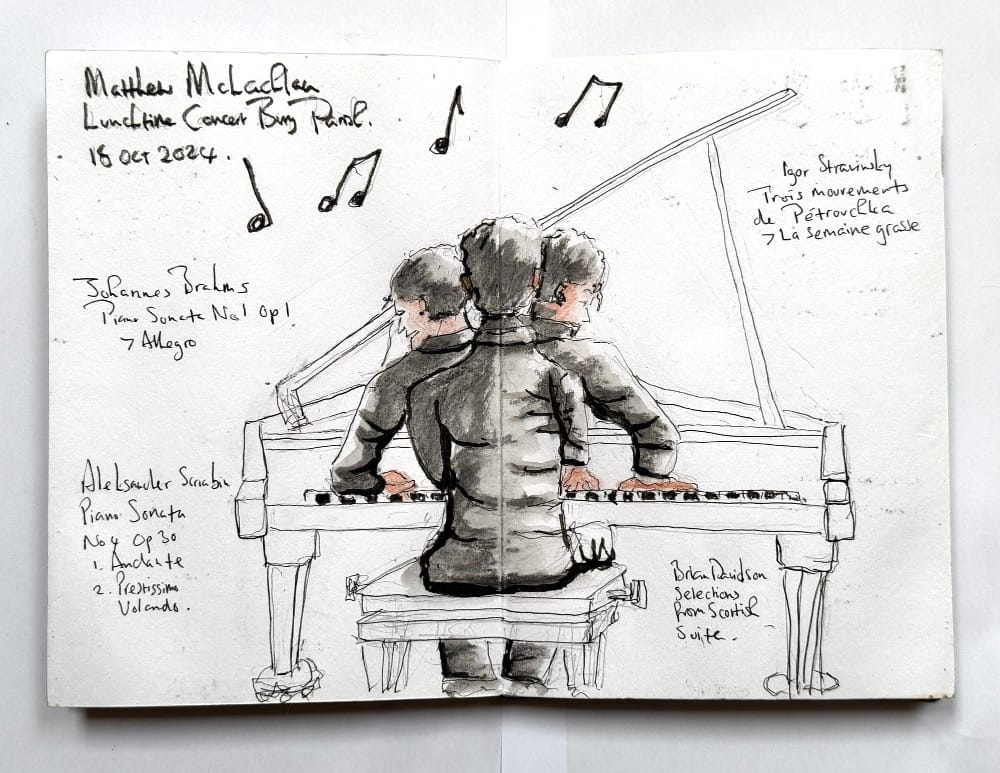 Matthew McLachlan
Lunchtime Concert Bury Parish.
18 Oct 2024.
Igor Stravinsky
Trois mouvements
de Pétrouchka
> La Semaine grasse
Johannes Brahms
Piano Sonata No1 Op1
> Allegro
Aleksander Scriabin
Piano Sonata
No 4 Op 30
1. Andante
2. Prestissimo
Volando.
Brian Davidson
Selections
from Scottish
Suite.